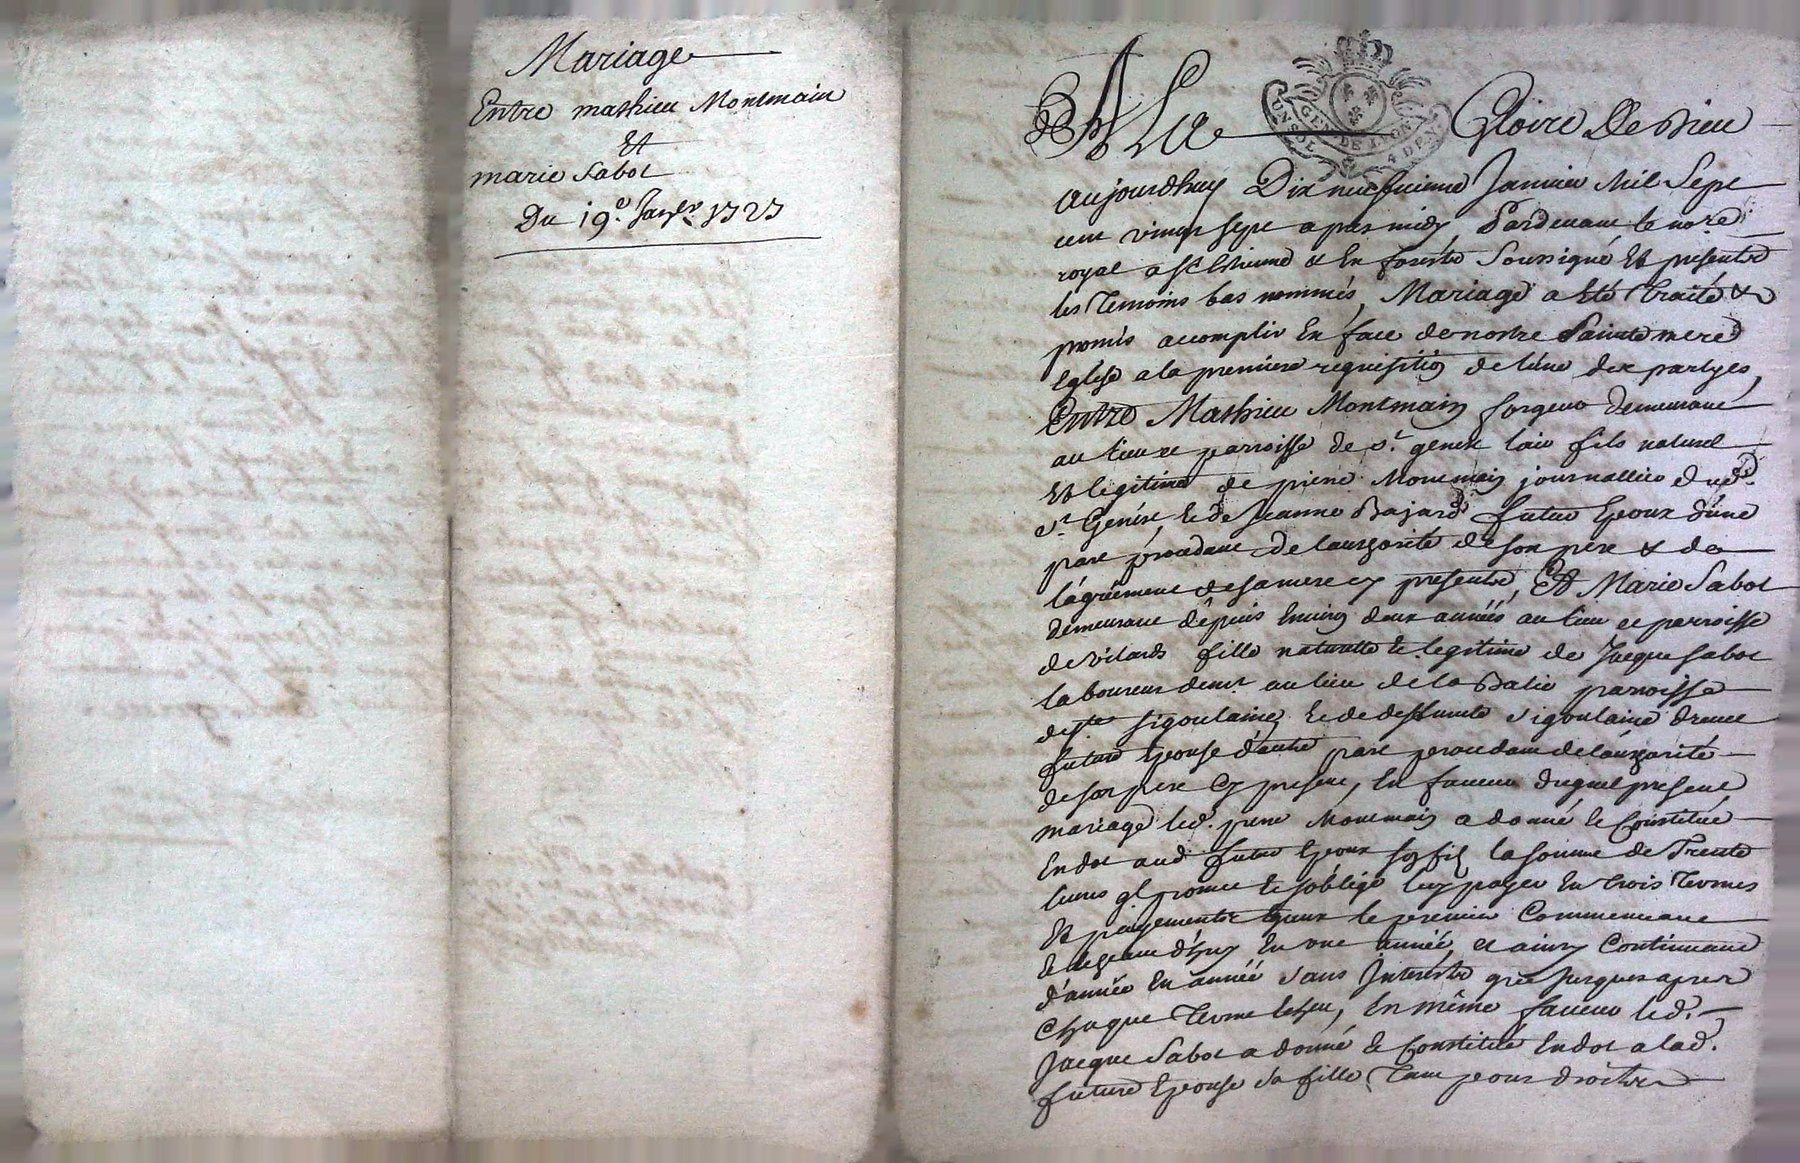 Mariage
Entre mathieu Montmain
Et
marie Sabot
Du 19e. Janvr. 1727
A La Gloire De Dieu
UN SOL GEN DE LYON 4 DEN
aujourdhuy Dix neufvieme Janvier Mil Sept
cent vingt sept apres midy, Pardevant le nore.
royal a St Estienne & En forests Soussigné Et presents
les Temoins bas nommés, Mariage a Eté Traité &
promis accomplir En face de nostre Sainte mere
Eglise a la premiere requisition de l'une des partyes,
Entre Mathieu Montmain forgeur demeurant
au lieu et parroisse de St. genest fils naturel
Et legitime de pierre Montmain journallier dud.
St. Genest & de Jeanne Bajard futur Epoux d'une
part procedant de lauthorité de son pere & de
lagréement de sa mere cy presents, Et Marie Sabot
demeurant dépuis Environ deux années au lieu et parroisse
de vilards fille naturelle & legitime de Jacque Sabot
laboureur demt. au lieu de la Batie parroisse
de ste sigoulaine, & de deffunte sigoulaine
future Epouse d'autre part procedant de l'authorité
de son pere cy present, En faveur duquel present
mariage led. pierre Montmain a donné & Constitué
En dot aud. futur Epoux son fils la somme de Trente
livres ql. promet & s'oblige luy payer En trois termes
Et payements Egaux le premier Commencant
d'huy En une année, et ainsy Continuant
d'année En année sans Interests que jusques apres
Chaque Terme Echeu, En même faveur led.
Jacque Sabot a donné & Constitué En dot a lad.
future Epouse sa fille Tant pour droits